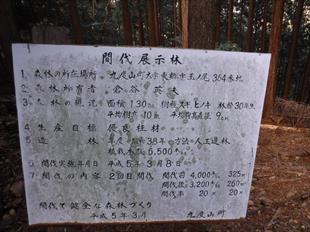 間伐展示林
1 森林の所在場所 九度山町大字東郷字玉ノ尾 364番地
2 森林所有者 倉谷英夫
3 森林の現況 面積 1.30ha 樹種 スギ ヒノキ 林齢 30年生
平均樹高 10m 平均胸高直径 9cm
4 生産目標 優良柱材
5 造林 昭和38年 方法 人工造林
植栽本数 6,500本
6 間伐実施年月日 平成5年3月8日
7 間伐の内容 2回目間伐 間伐前 4,000本 325
間伐後 3,200本 260
間伐率 20 20
間伐で健全な森林づくり
平成5年3月 九度山町